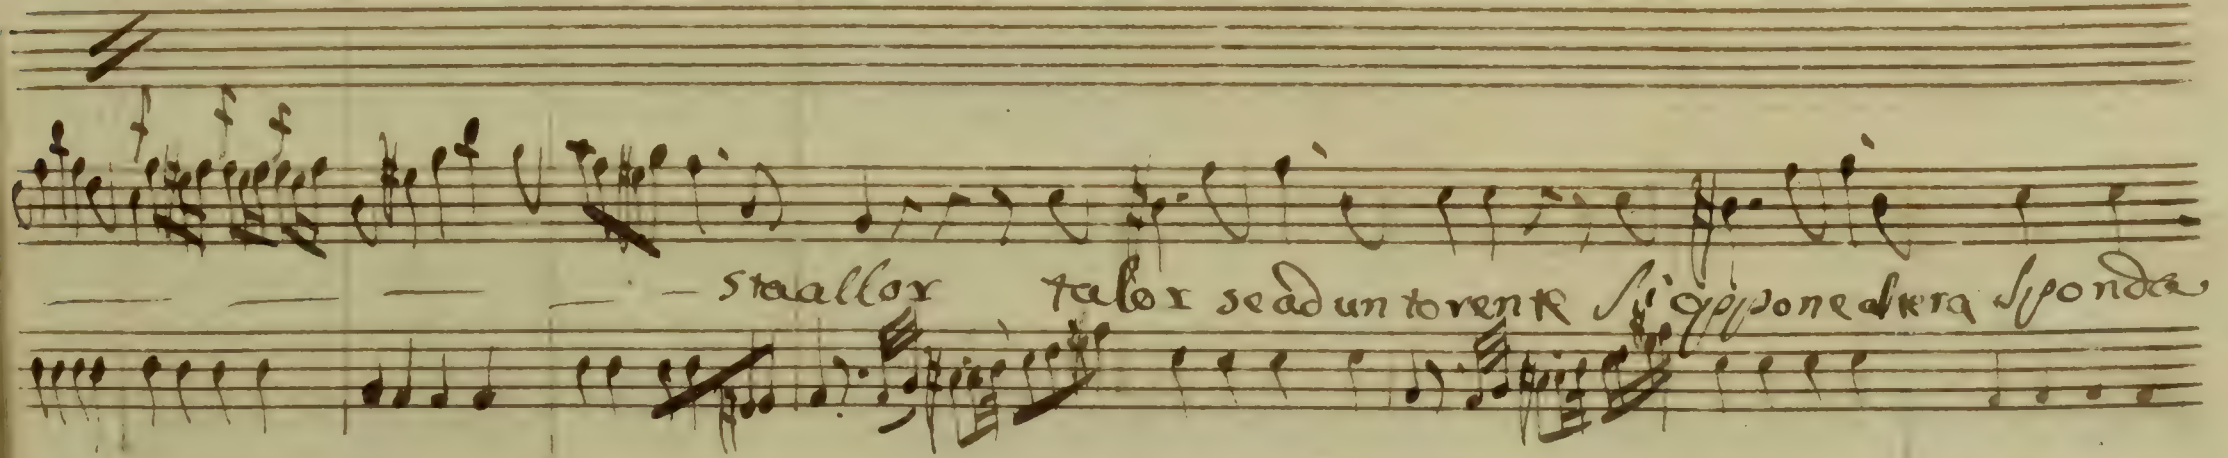 f f f
sta allor talor se ad un torente si oppone altera sponda